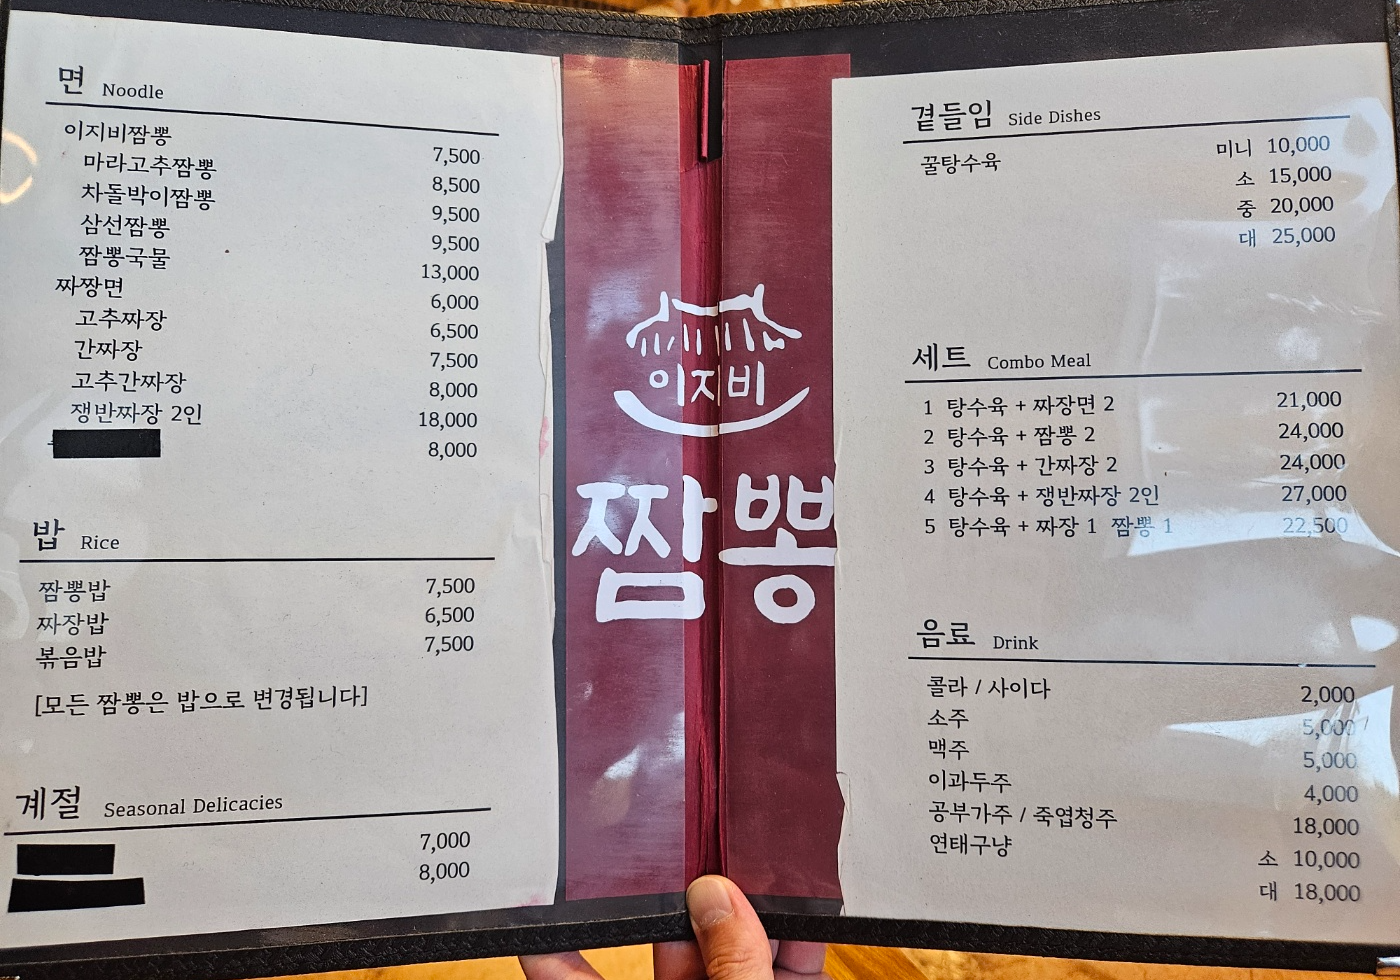 면 Noodle
이지비짬뽕 7,500
마라고추짬뽕 8,500
차돌박이짬뽕 9,500
삼선짬뽕 9,500
짬뽕국물 13,000
짜짱면 6,000
고추짜장 6,500
간짜장 7,500
고추간짜장 8,000
쟁반짜장 2인 18,000
8,000
밥 Rice
짬뽕밥 7,500
짜장밥 6,500
볶음밥 7,500
[모든 짬뽕은 밥으로 변경됩니다]
계절 Seasonal Delicacies
7,000
8,000
이지비
짬뽕
곁들임 Side Dishes
꿀탕수육 미니 10,000
소 15,000
중 20,000
대 25,000
세트 Combo Meal
1 탕수육 + 짜장면 2 21,000
2 탕수육 + 짬뽕 2 24,000
3 탕수육 + 간짜장 2 24,000
4 탕수육 + 쟁반짜장 2인 27,000
5 탕수육 + 짜장 1 짬뽕 1 22,500
음료 Drink
콜라 / 사이다 2,000
소주 5,000
맥주 5,000
이과두주 4,000
공부가주 / 죽엽청주 18,000
연태구냥 소 10,000
대 18,000